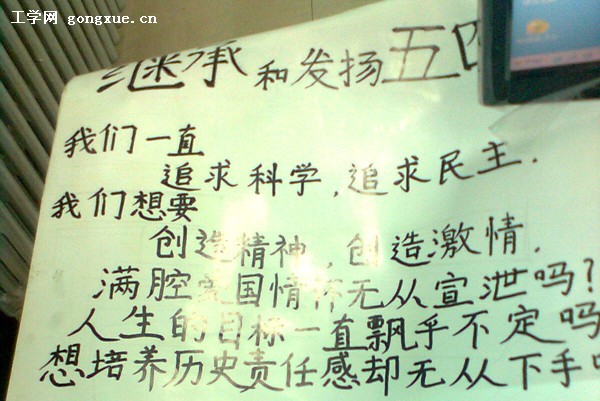 工学网 gongxue.cn
继承和发扬五四
我们一直
追求科学,追求民主.
我们想要
创造精神,创造激情.
满腔爱国情怀无从宣泄吗?
人生的目标一直飘乎不定吗
想培养历史责任感却无从下手吗